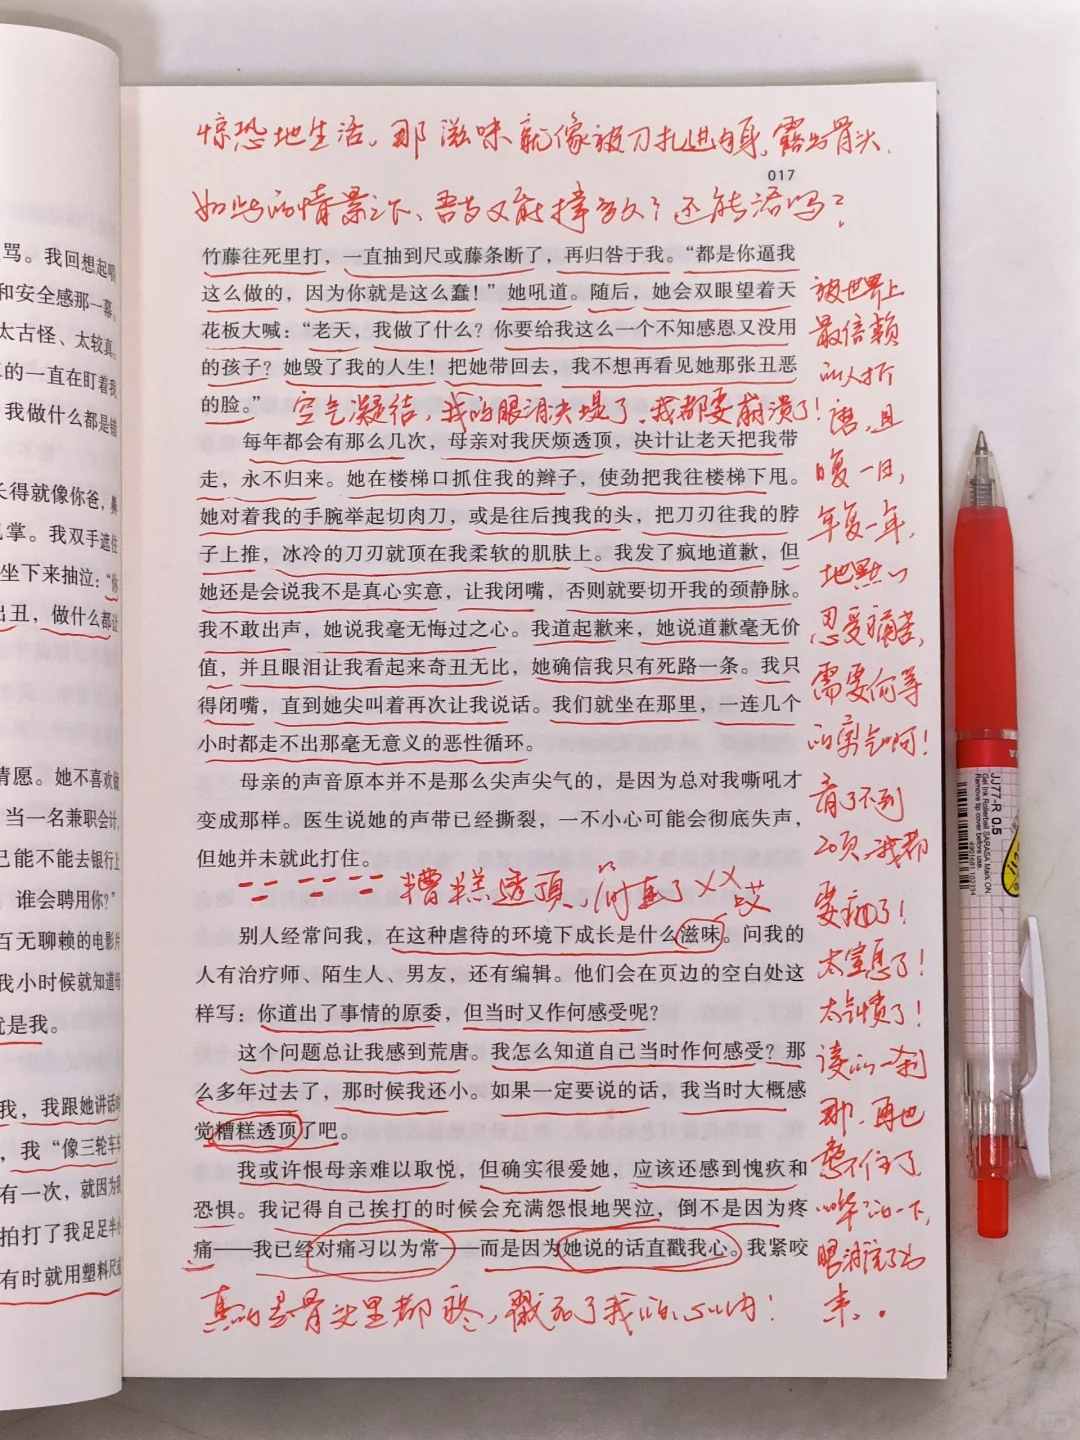 骂。我回想起唱
和安全感那一幕。
太古怪、太较真
的一直在盯着我
我做什么都是错
长得就像你爸，鼻
掌。我双手遮住
坐下来抽泣：“你
出丑，做什么都让
情愿。她不喜欢做
当一名兼职会计，
己能不能去银行上
谁会聘用你？”
百无聊赖的电影片
我小时候就知道母
就是我。
我，我跟她讲话时
，我“像三轮车车
有一次，就因为我
拍打了我足足半小
有时就用塑料尺或
惊恐地生活。那滋味就像被刀扎进肉身，露出骨头，
017
如此的情景之下、吾者又能撑多久？还能活吗？
竹藤往死里打，一直抽到尺或藤条断了，再归咎于我。“都是你逼我
这么做的，因为你就是这么蠢！”她吼道。随后，她会双眼望着天
花板大喊：“老天，我做了什么？你要给我这么一个不知感恩又没用
的孩子？她毁了我的人生！把她带回去，我不想再看见她那张丑恶
的脸。”
空气凝结，我的眼泪决堤了，我都要崩溃了！
每年都会有那么几次，母亲对我厌烦透顶，决计让老天把我带
走，永不归来。她在楼梯口抓住我的辫子，使劲把我往楼梯下甩。
她对着我的手腕举起切肉刀，或是往后拽我的头，把刀刃往我的脖
子上推，冰冷的刀刃就顶在我柔软的肌肤上。我发了疯地道歉，但
她还是会说我不是真心实意，让我闭嘴，否则就要切开我的颈静脉。
我不敢出声，她说我毫无悔过之心。我道起歉来，她说道歉毫无价
值，并且眼泪让我看起来奇丑无比，她确信我只有死路一条。我只
得闭嘴，直到她尖叫着再次让我说话。我们就坐在那里，一连几个
小时都走不出那毫无意义的恶性循环。
母亲的声音原本并不是那么尖声尖气的，是因为总对我嘶吼才
变成那样。医生说她的声带已经撕裂，一不小心可能会彻底失声，
但她并未就此打住。
糟糕透顶
哎
别人经常问我，在这种虐待的环境下成长是什么滋味。问我的
人有治疗师、陌生人、男友，还有编辑。他们会在页边的空白处这
样写：你道出了事情的原委，但当时又作何感受呢？
这个问题总让我感到荒唐。我怎么知道自己当时作何感受？那
么多年过去了，那时候我还小。如果一定要说的话，我当时大概感
觉糟糕透顶了吧。
我或许恨母亲难以取悦，但确实很爱她，应该还感到愧疚和
恐惧。我记得自己挨打的时候会充满怨恨地哭泣，倒不是因为疼
痛——我已经对痛习以为常——而是因为她说的话直戳我心。我紧咬
真的是骨头里都疼，戳死了我的心肉！
被世界上
最信赖
的人折
磨，且
日复一日，
年复一年，
地默默
忍受痛苦，
需要何等
的勇气啊！
看了不到
20页，我都
要疯了！
太窒息了！
太气愤了！
读的一刹
那，再也
憋不住了
哗的一下，
眼泪流了出
来。
JJ77-R 0.5
Gel Ink Rollerball SARASA Mark ON
Remove tip cover before use.